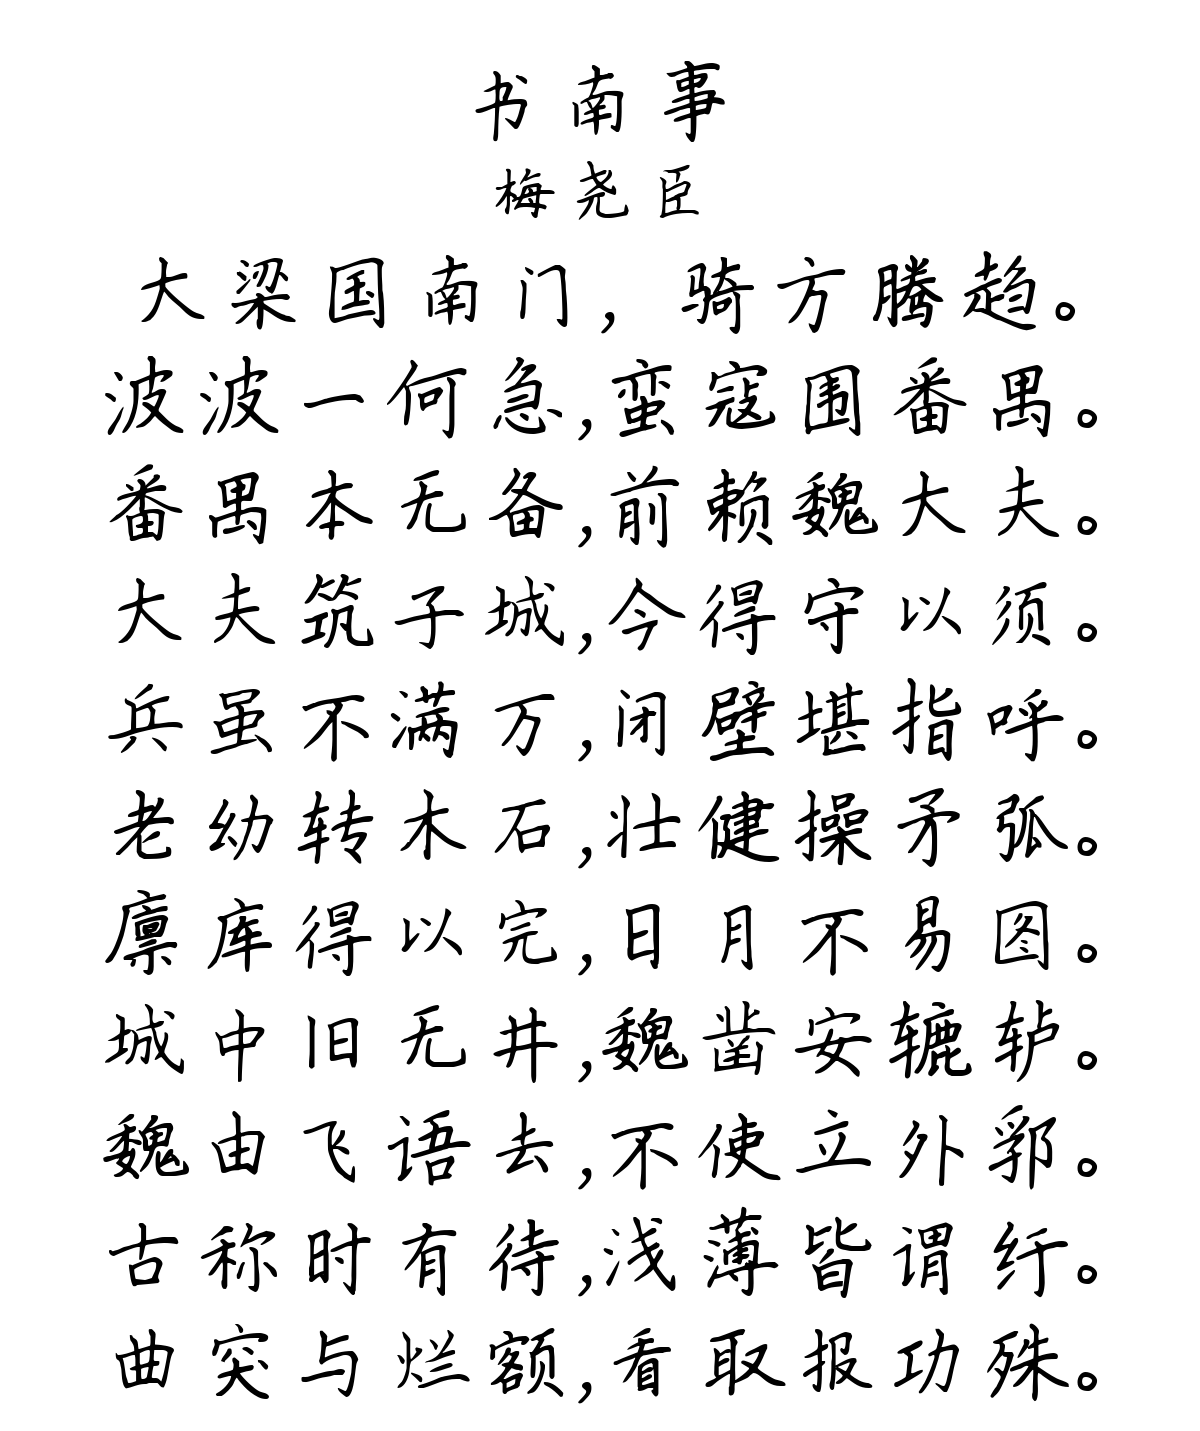 书南事
梅尧臣
大梁国南门，骑方腾趋。
波波一何急,蛮寇围番禺。
番禺本无备,前赖魏大夫。
大夫筑子城,今得守以须。
兵虽不满万,闭壁堪指呼。
老幼转木石,壮健操矛弧。
廪库得以完,日月不易图。
城中旧无井,魏凿安辘轳。
魏由飞语去,不使立外郛。
古称时有待,浅薄皆谓纡。
曲突与烂额,看取报功殊。